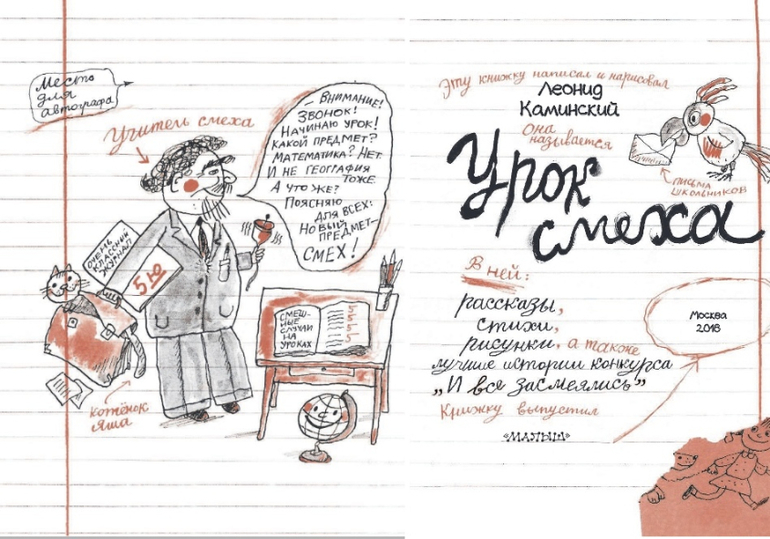 Место
для
автографа
Учитель смеха
— Внимание!
Звонок!
Начинаю урок!
Какой предмет?
Математика? Нет.
И не география
тоже.
А что же?
Поясняю
для всех:
Новый
предмет—
смех!
очень
классный
журнал
5 Ю
смеш-
ные
случаи
на
уроках
котёнок
Яша
Эту книжку написал и нарисовал
Леонид
Каминский
она
называется
Урок
смеха
письма
школьников
В ней:
рассказы,
стихи,
рисунки, а также
лучшие истории конкурса
„И все засмеялись”
Книжку выпустил
«МАЛЫШ»
Москва
2016